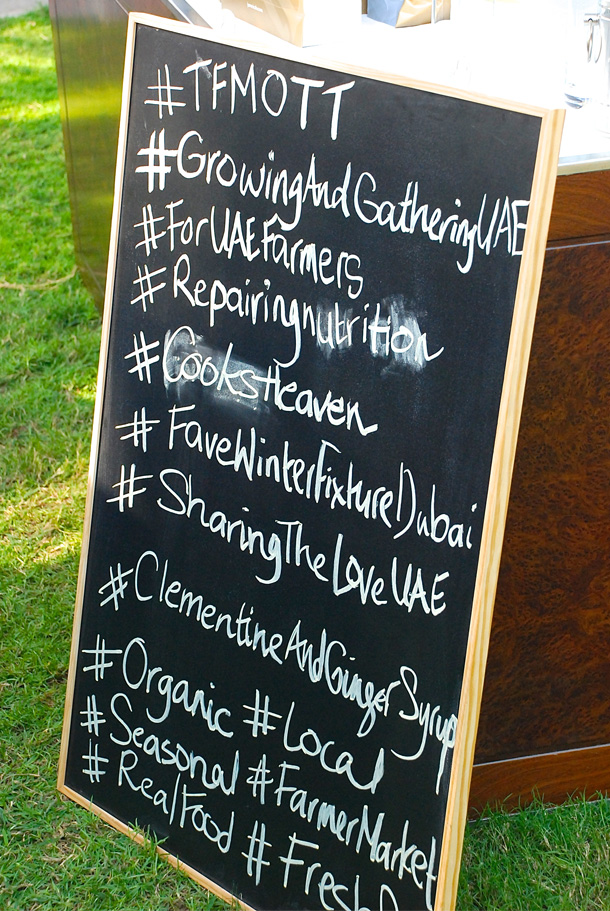 #TFMOTT
#GrowingAndGatheringUAE
#ForUAEFarmers
#Repairingnutrition
#CooksHeaven
#FaveWinterFixtureDubai
#SharingTheLoveUAE
#ClementineAndGingerSyrup
#Organic #Local
#Seasonal #FarmerMarket
#RealFood #Fresh